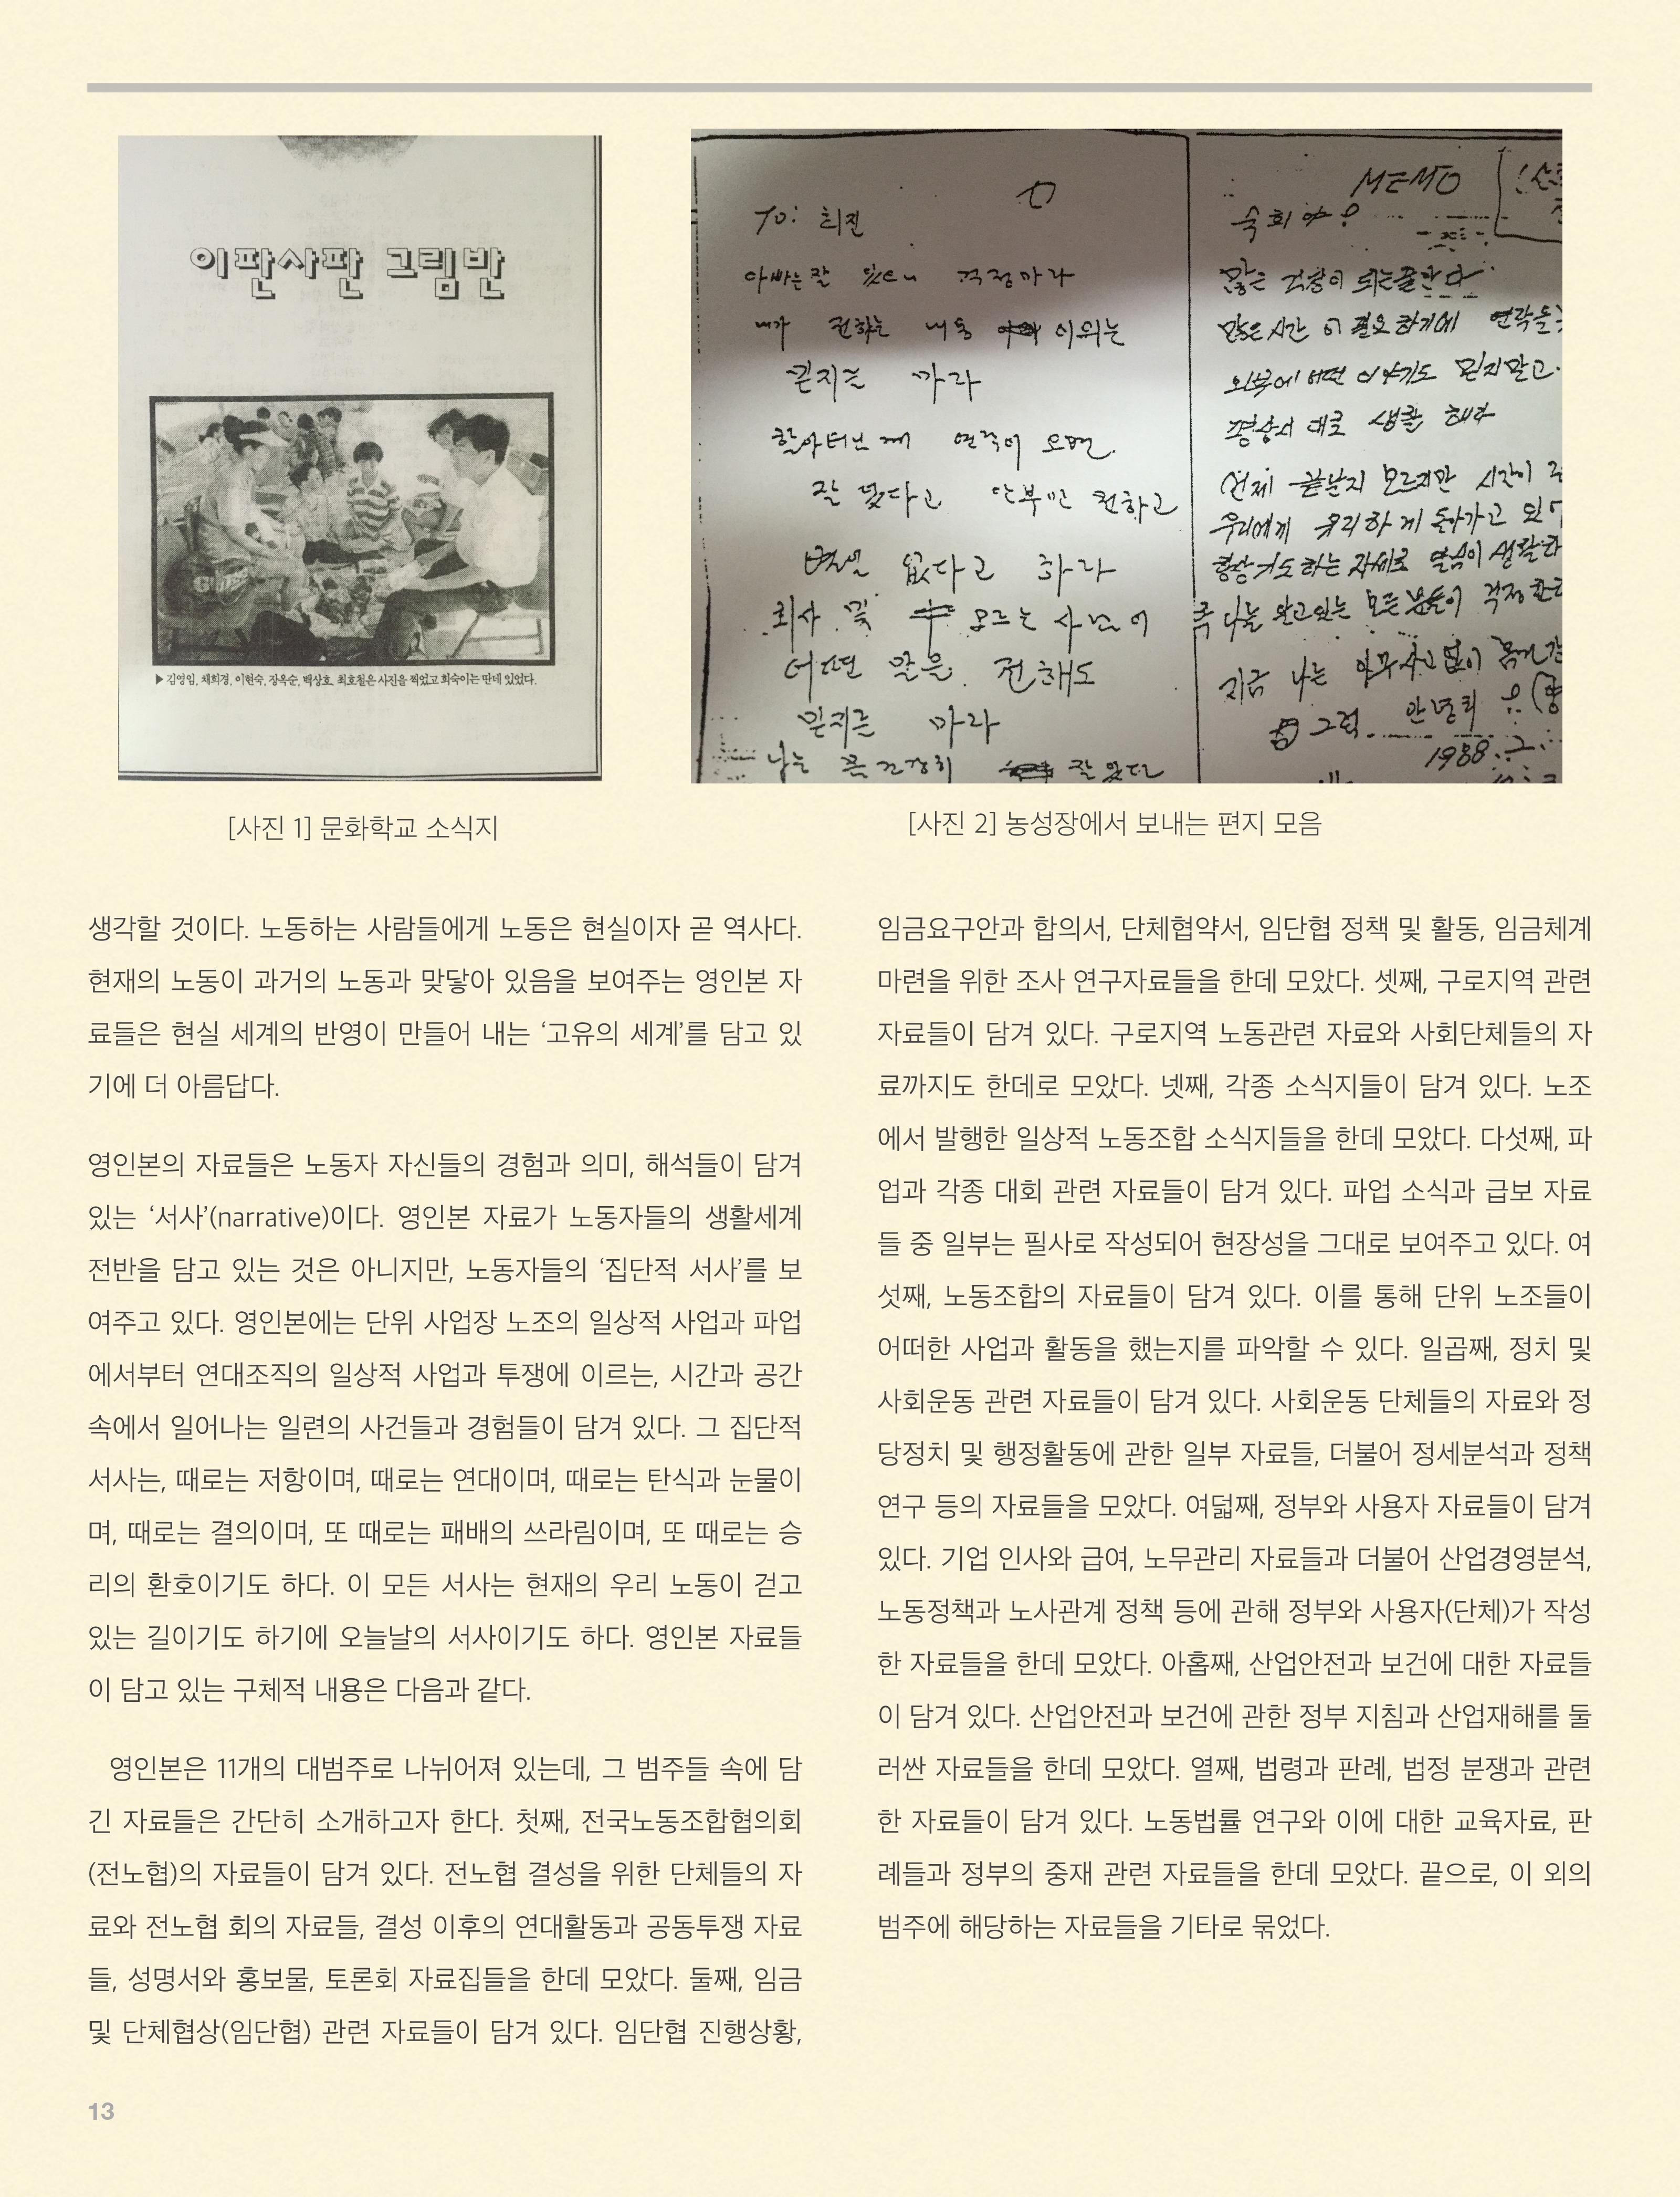 이판사판 그림반
▶ 김영임, 채희경, 이현숙, 장옥순, 백상호, 최호철은 사진을 찍었고 희숙이는 딴데 있었다.
[사진 1] 문화학교 소식지
To: 희진
아빠는 잘 있으니 걱정마라
내가 전하는 내용 이외는
믿지를 마라
할아버님께 연락이 오면.
잘 있다고 안부만 전하고
별일 없다고 하라
회사 및 모르는 사람이
어떤 말을 전해도
믿지를 마라
나는 건강히 잘 있다
MEMO
숙희야 ?
많은 걱정이 되는줄 안다
많은 시간이 필요하기에 연락을
외부에 어떤 이야기도 믿지말고.
평상시 대로 생활 해라
언제 끝날지 모르지만 시간이
우리에게 유리하게 돌아가고 있
항상 기도하는 자세로 말씀이 생활화
나를 알고있는 모든 분들이 걱정
지금 나는 아무사고 없이
그럼 안녕히
1988.
[사진 2] 농성장에서 보내는 편지 모음
생각할 것이다. 노동하는 사람들에게 노동은 현실이자 곧 역사다.
현재의 노동이 과거의 노동과 맞닿아 있음을 보여주는 영인본 자
료들은 현실 세계의 반영이 만들어 내는 ‘고유의 세계’를 담고 있
기에 더 아름답다.
영인본의 자료들은 노동자 자신들의 경험과 의미, 해석들이 담겨
있는 ‘서사’(narrative)이다. 영인본 자료가 노동자들의 생활세계
전반을 담고 있는 것은 아니지만, 노동자들의 ‘집단적 서사’를 보
여주고 있다. 영인본에는 단위 사업장 노조의 일상적 사업과 파업
에서부터 연대조직의 일상적 사업과 투쟁에 이르는, 시간과 공간
속에서 일어나는 일련의 사건들과 경험들이 담겨 있다. 그 집단적
서사는, 때로는 저항이며, 때로는 연대이며, 때로는 탄식과 눈물이
며, 때로는 결의이며, 또 때로는 패배의 쓰라림이며, 또 때로는 승
리의 환호이기도 하다. 이 모든 서사는 현재의 우리 노동이 걷고
있는 길이기도 하기에 오늘날의 서사이기도 하다. 영인본 자료들
이 담고 있는 구체적 내용은 다음과 같다.
영인본은 11개의 대범주로 나뉘어져 있는데, 그 범주들 속에 담
긴 자료들은 간단히 소개하고자 한다. 첫째, 전국노동조합협의회
(전노협)의 자료들이 담겨 있다. 전노협 결성을 위한 단체들의 자
료와 전노협 회의 자료들, 결성 이후의 연대활동과 공동투쟁 자료
들, 성명서와 홍보물, 토론회 자료집들을 한데 모았다. 둘째, 임금
및 단체협상(임단협) 관련 자료들이 담겨 있다. 임단협 진행상황,
임금요구안과 합의서, 단체협약서, 임단협 정책 및 활동, 임금체계
마련을 위한 조사 연구자료들을 한데 모았다. 셋째, 구로지역 관련
자료들이 담겨 있다. 구로지역 노동관련 자료와 사회단체들의 자
료까지도 한데로 모았다. 넷째, 각종 소식지들이 담겨 있다. 노조
에서 발행한 일상적 노동조합 소식지들을 한데 모았다. 다섯째, 파
업과 각종 대회 관련 자료들이 담겨 있다. 파업 소식과 급보 자료
들 중 일부는 필사로 작성되어 현장성을 그대로 보여주고 있다. 여
섯째, 노동조합의 자료들이 담겨 있다. 이를 통해 단위 노조들이
어떠한 사업과 활동을 했는지를 파악할 수 있다. 일곱째, 정치 및
사회운동 관련 자료들이 담겨 있다. 사회운동 단체들의 자료와 정
당정치 및 행정활동에 관한 일부 자료들, 더불어 정세분석과 정책
연구 등의 자료들을 모았다. 여덟째, 정부와 사용자 자료들이 담겨
있다. 기업 인사와 급여, 노무관리 자료들과 더불어 산업경영분석,
노동정책과 노사관계 정책 등에 관해 정부와 사용자(단체)가 작성
한 자료들을 한데 모았다. 아홉째, 산업안전과 보건에 대한 자료들
이 담겨 있다. 산업안전과 보건에 관한 정부 지침과 산업재해를 둘
러싼 자료들을 한데 모았다. 열째, 법령과 판례, 법정 분쟁과 관련
한 자료들이 담겨 있다. 노동법률 연구와 이에 대한 교육자료, 판
례들과 정부의 중재 관련 자료들을 한데 모았다. 끝으로, 이 외의
범주에 해당하는 자료들을 기타로 묶었다.
13